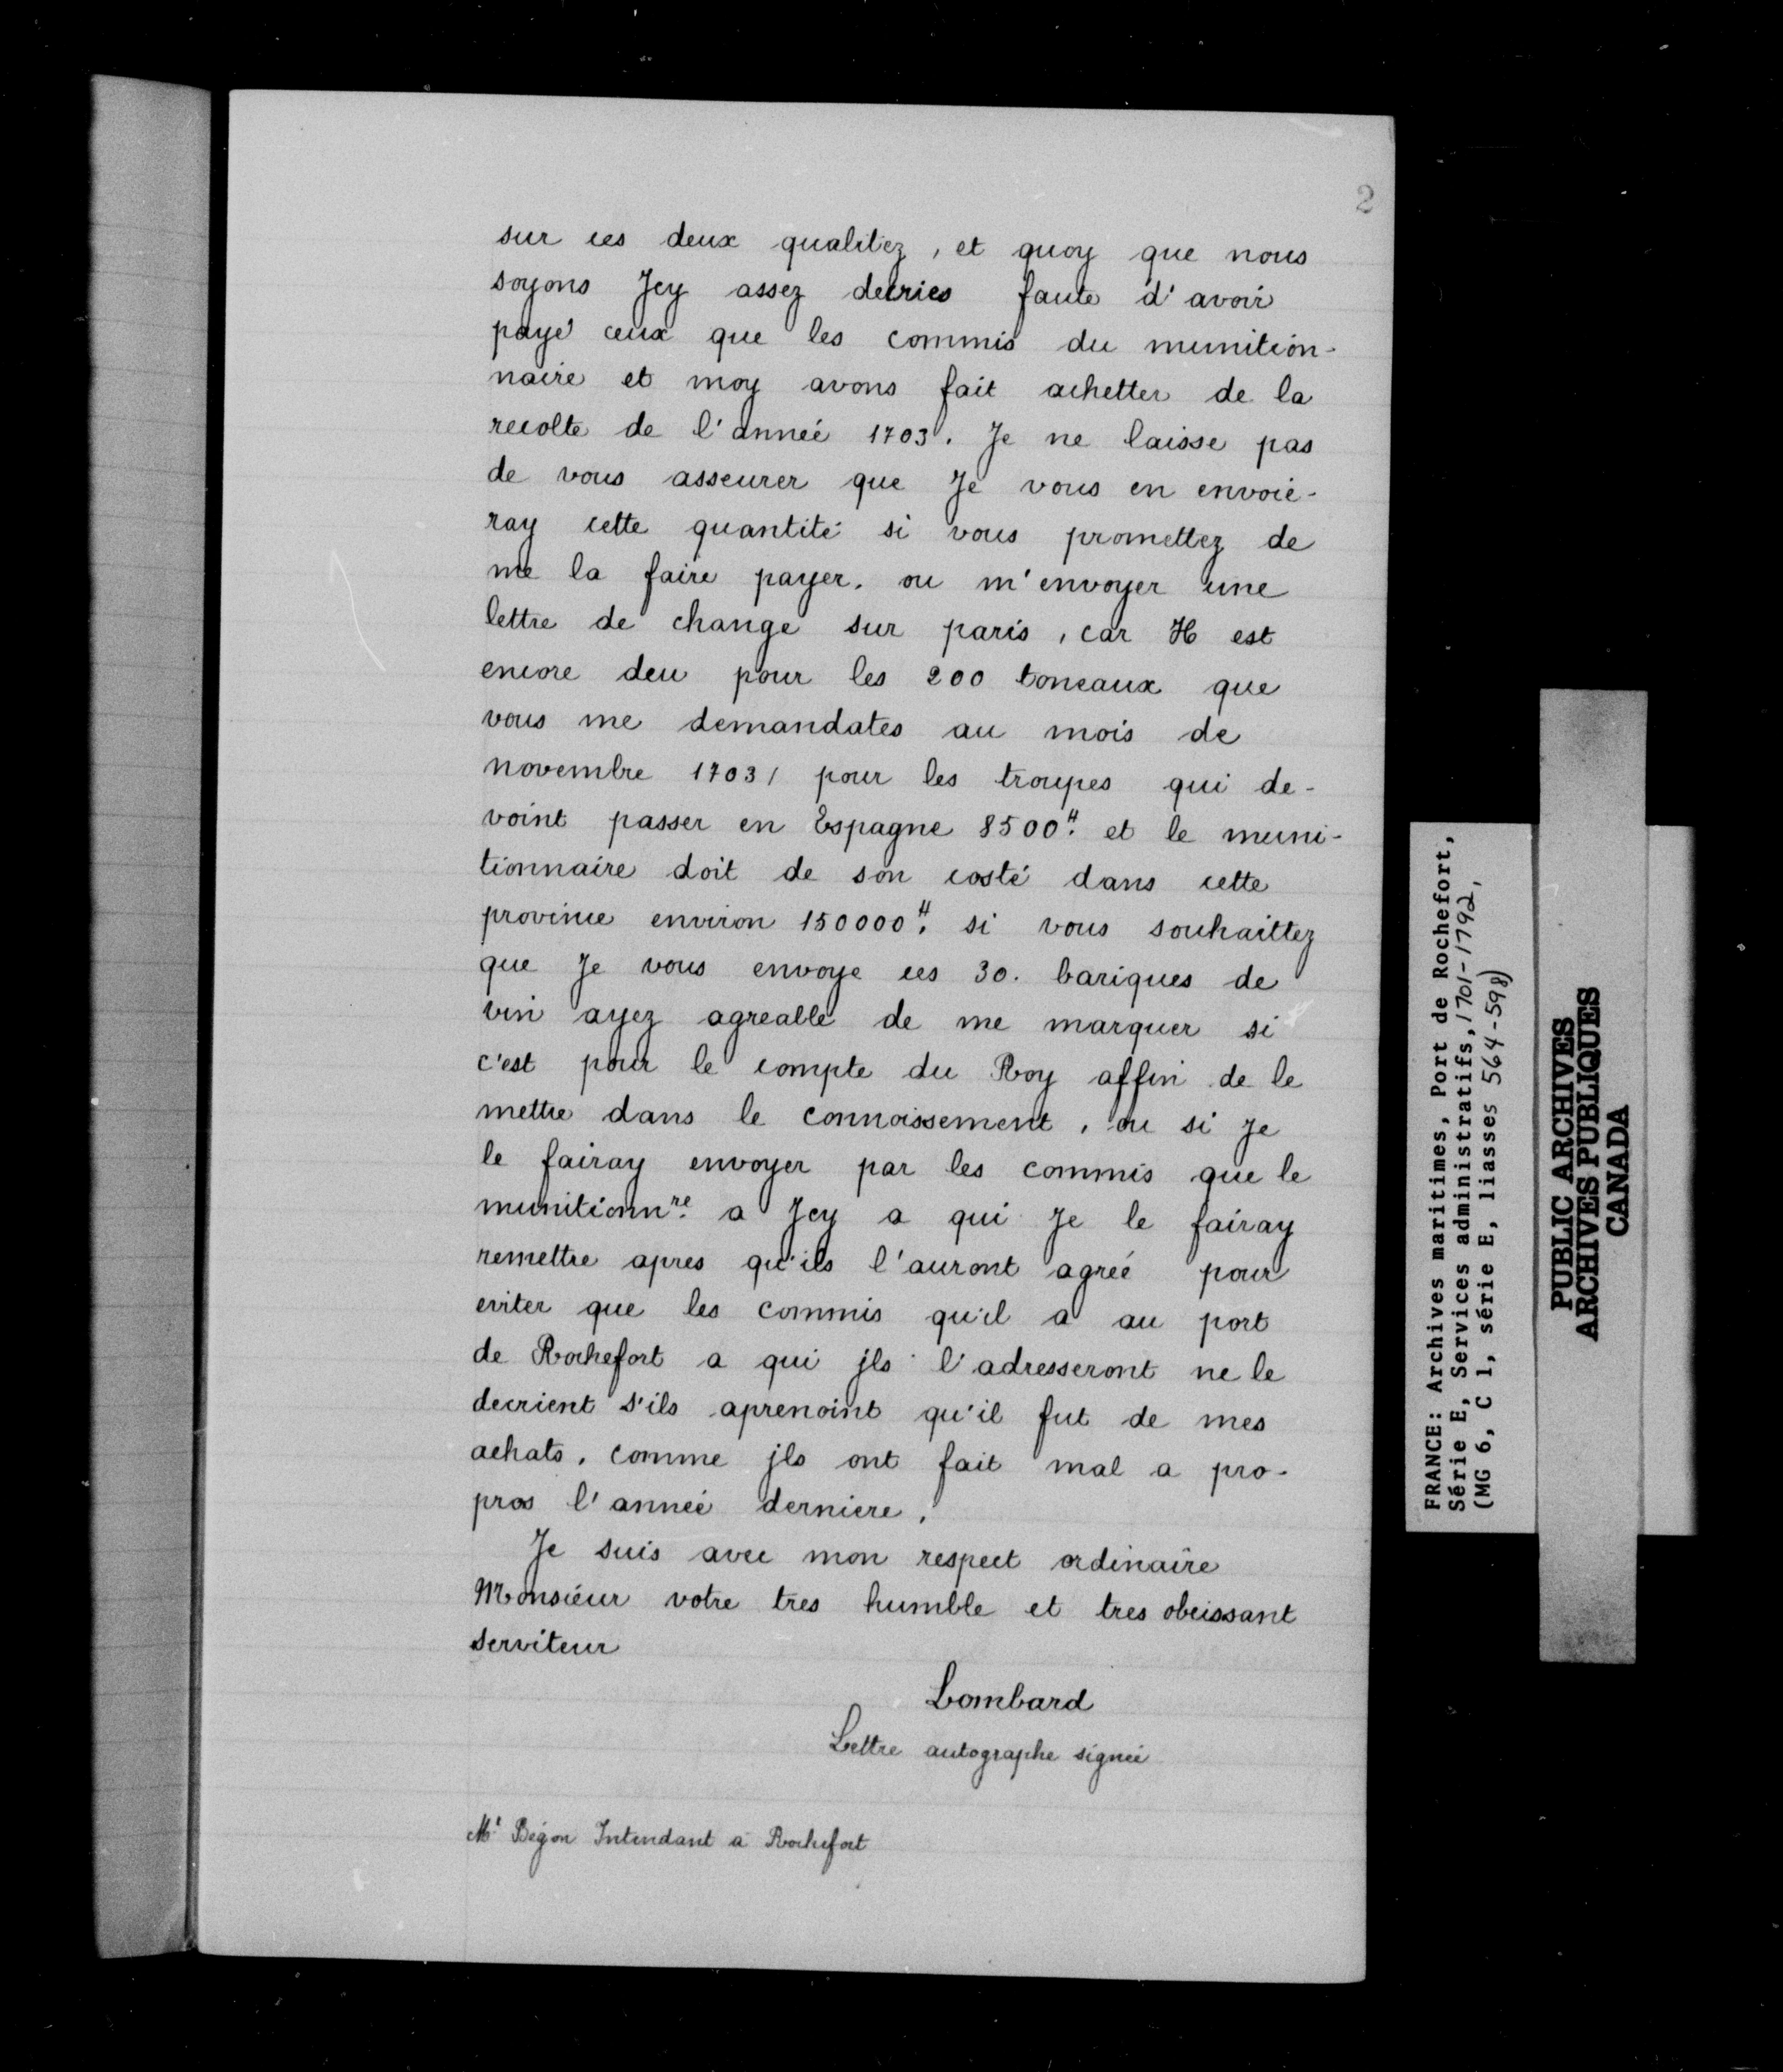 2
sur ces deux qualitez, et quoy que nous
soyons Jcy assez decries faute d'avoir
payé ceux que les commis du munition-
naire et moy avons fait achetter de la
recolte de l'année 1703. Je ne laisse pas
de vous asseurer que Je vous en envoie-
ray cette quantité si vous promettez de
me la faire payer. ou m'envoyer une
lettre de change sur paris, car Il est
encore deu pour les 200 toneaux que
vous me demandates au mois de
novembre 1703, pour les troupes qui de-
voint passer en Espagne 8500ᴴ. et le muni-
tionnaire doit de son costé dans cette
province environ 150000ᴴ. si vous souhaittez
que Je vous envoye ces 30. bariques de
vin ayez agreable de me marquer si
c'est pour le compte du Roy affin de le
mettre dans le connoissement, ou si Je
le fairay envoyer par les commis que le
munitionnʳᵉ. a Jcy a qui Je le fairay
remettre apres qu'ils l'auront agréé pour
eviter que les commis qu'il a au port
de Rochefort a qui jls l'adresseront ne le
decrient s'ils aprenoint qu'il fut de mes
achats, comme jls ont fait mal a pro-
pros l'année derniere,
Je suis avec mon respect ordinaire
Monsieur votre tres humble et tres obeissant
serviteur
Lombard
Lettre autographe signée
Mʳ Bégon Intendant à Rochefort
FRANCE: Archives maritimes, Port de Rochefort,
Série E, Services administratifs, 1701-1792,
(MG 6, C 1, série E, liasses 564-598)
PUBLIC ARCHIVES
ARCHIVES PUBLIQUES
CANADA